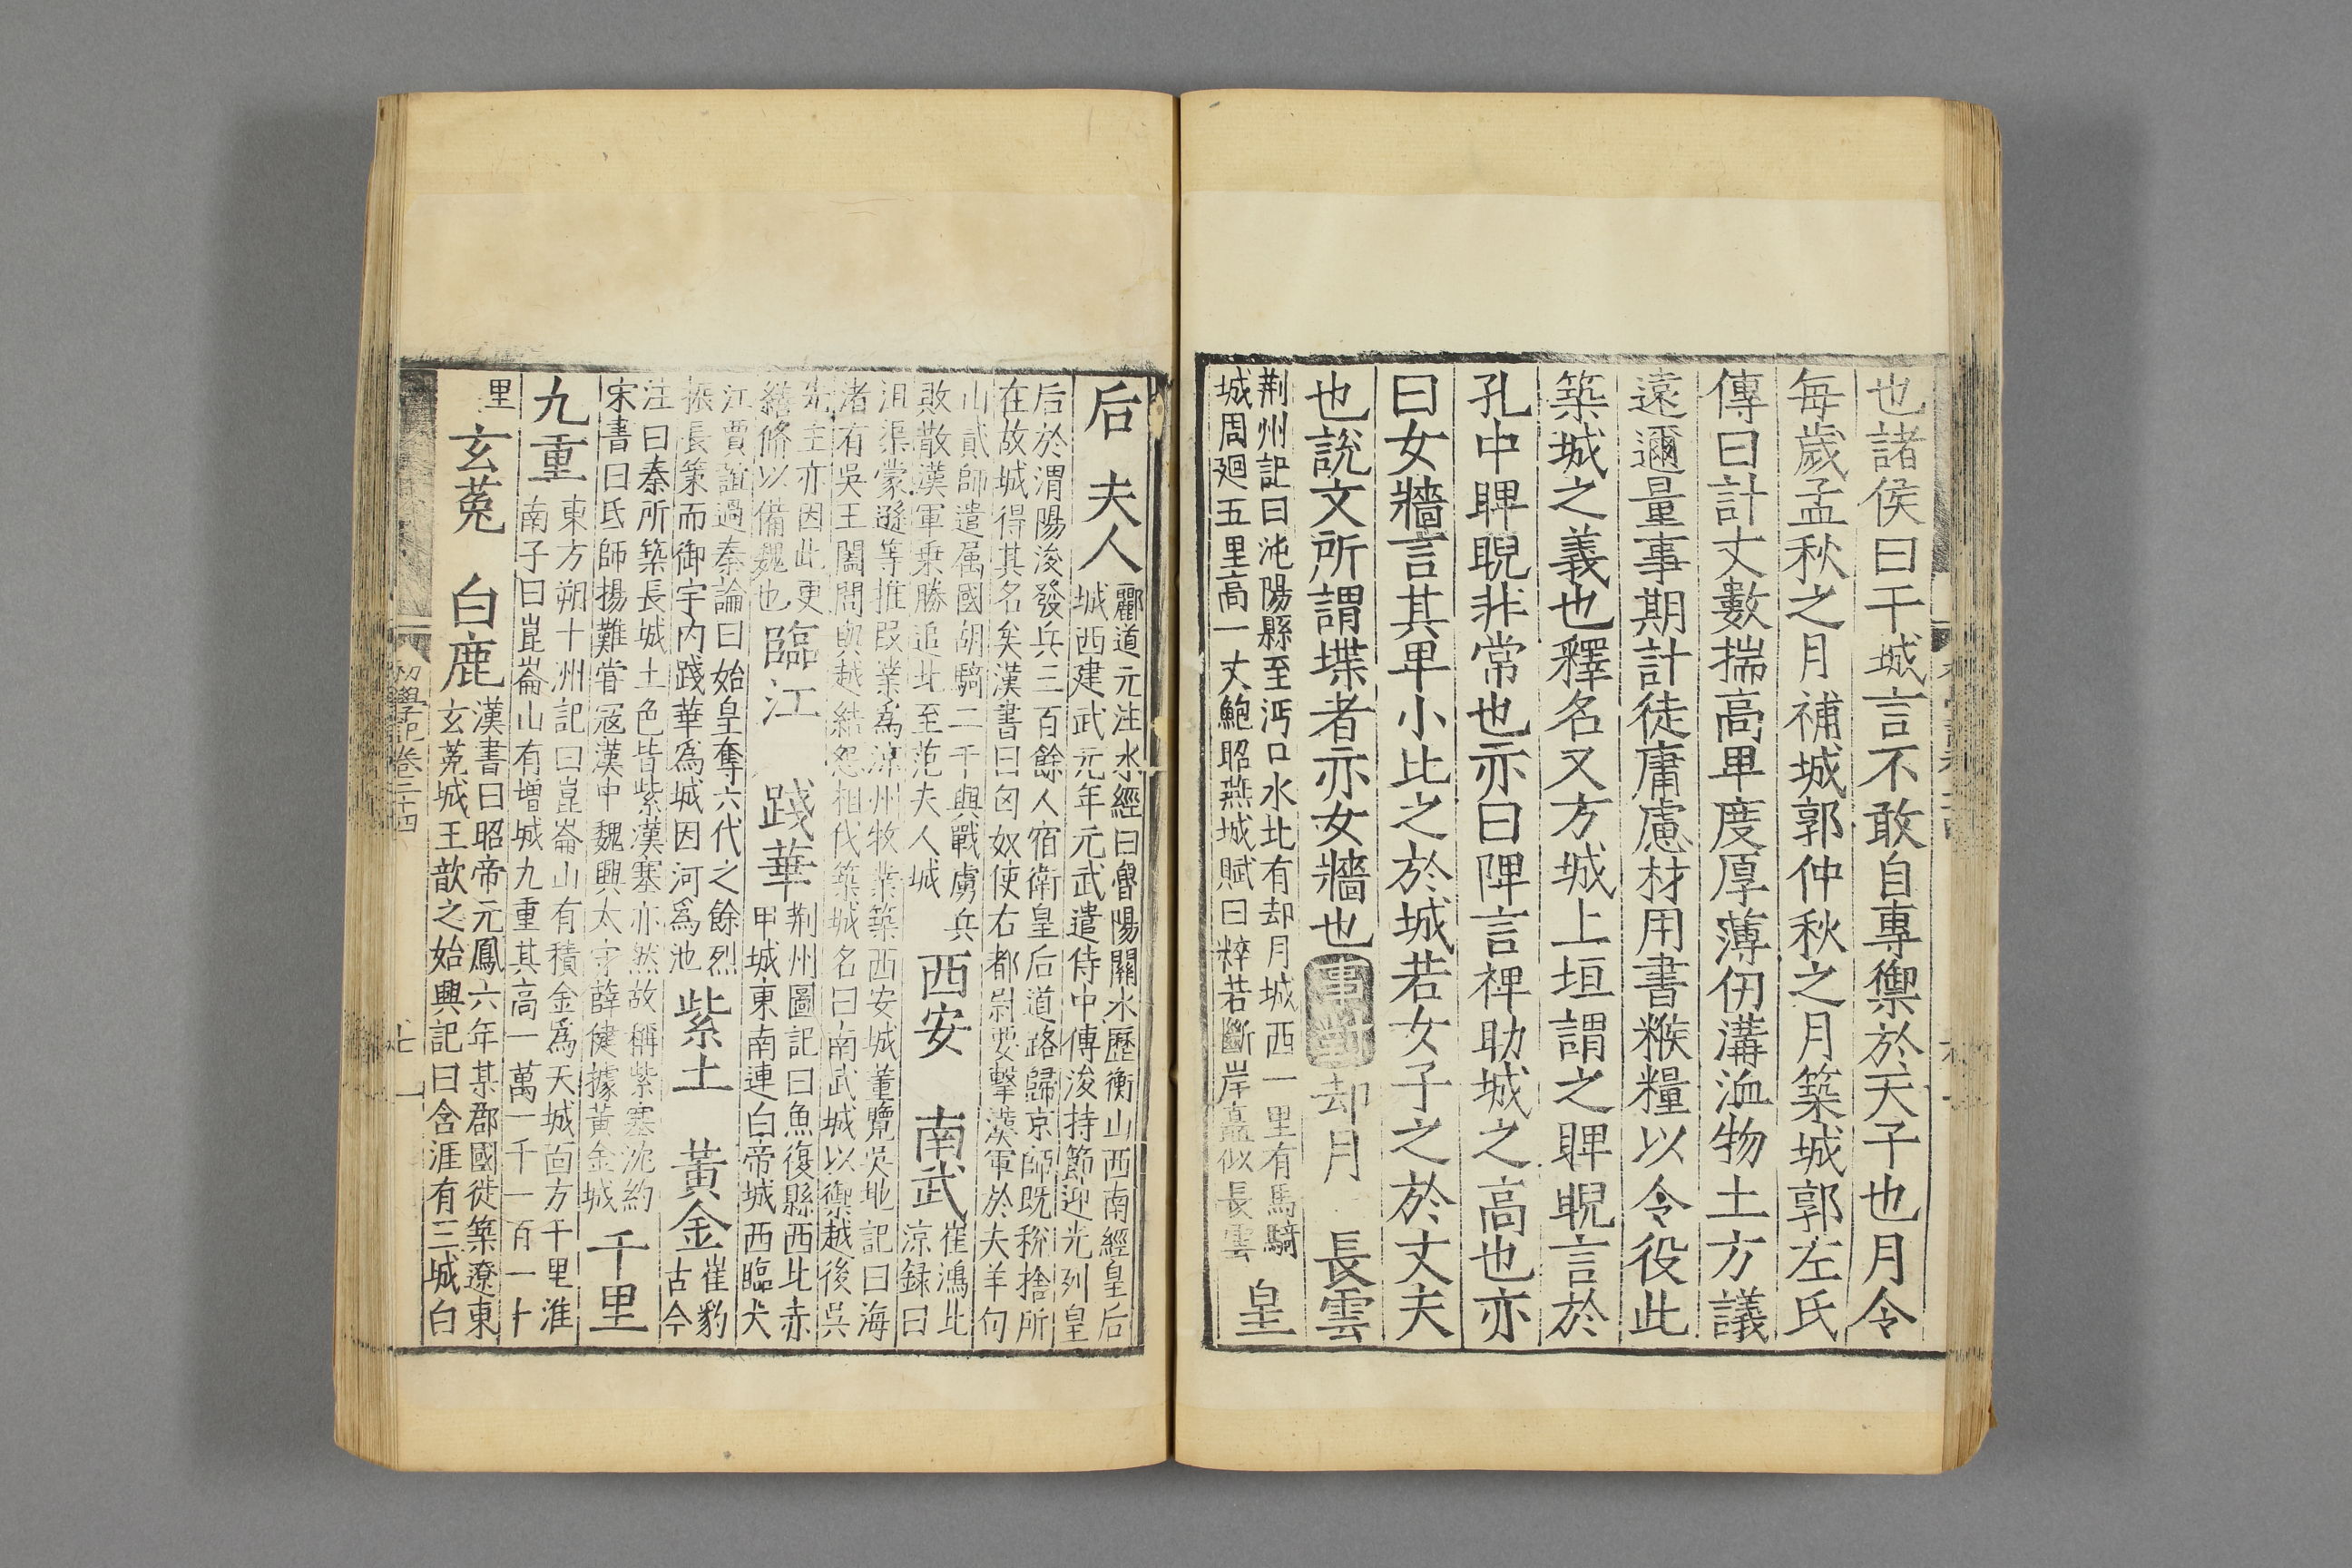 也諸侯曰干城言不敢自專禦於天子也月令
每歲孟秋之月補城郭仲秋之月築城郭左氏
傳曰計丈數揣高卑度厚薄仞溝洫物土方議
遠邇量事期計徒庸慮材用書糇糧以令役此
築城之義也釋名又方城上垣謂之睥睨言於
孔中睥睨非常也亦曰陴言裨助城之高也亦
曰女牆言其卑小比之於城若女子之於丈夫
也說文所謂堞者亦女牆也 事對 却月 長雲
荊州記曰沌陽縣至沔口水北有却月城西一里有馬騎
城周廻五里高一丈鮑昭燕城賦曰粹若斷岸矗似長雲
皇
后 夫人
酈道元注水經曰魯陽關水歷衡山西南經皇后
城西建武元年元武遣侍中傳浚持節迎光列皇
后於渭陽浚發兵三百餘人宿衛皇后道路歸京師既稅捨所
在故城得其名矣漢書曰匈奴使右都尉要擊漢軍於夫羊句
山貳師遣屬國胡騎二千與戰虜兵
敗散漢軍乗勝追北至范夫人城
西安 南武
崔鴻北
涼録曰
沮渠蒙遜等推叚業爲凉州牧業築西安城董覽吳地記曰海
渚有吳王闔閭與越結怨相伐築城名曰南武城以禦越後吳
先主亦因此更
繕脩以備魏也
臨江 踐華
荆州圖記曰魚復縣西北赤
甲城東南連白帝城西臨犬
江賈誼過秦論曰始皇奪六代之餘烈
振長策而御宇内踐華爲城因河爲池
紫土 黃金
崔豹
古今
注曰秦所築長城土色皆紫漢塞亦然故稱紫塞沈約
宋書曰氐師揚難甞寇漢中魏興太守薛健據黃金城
千里
九重
東方朔十洲記曰崑崙山有積金爲天城靣方千里淮
南子曰崑崙山有增城九重其高一萬一千一百一十
里
玄菟 白鹿
漢書曰昭帝元鳳六年某郡國徙築遼東
玄菟城王歆之始興記曰含涯有三城白
初學記卷二十四
七